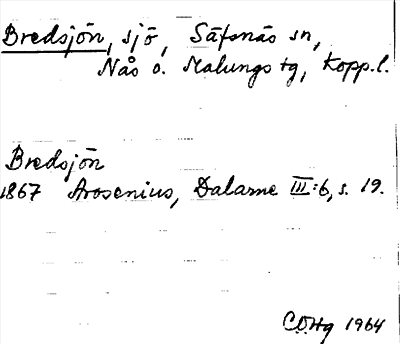 Bredsjön, sjö, Säfsnäs sn,
Nås o. Malungs tg, Kopp.l.
Bredsjön
1867 Arosenius, Dalarne III:6, s. 19.
C.O.Hg 1964